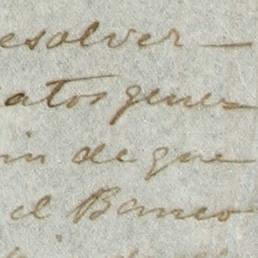 esolver —
atos gener=
in de que
el Banco